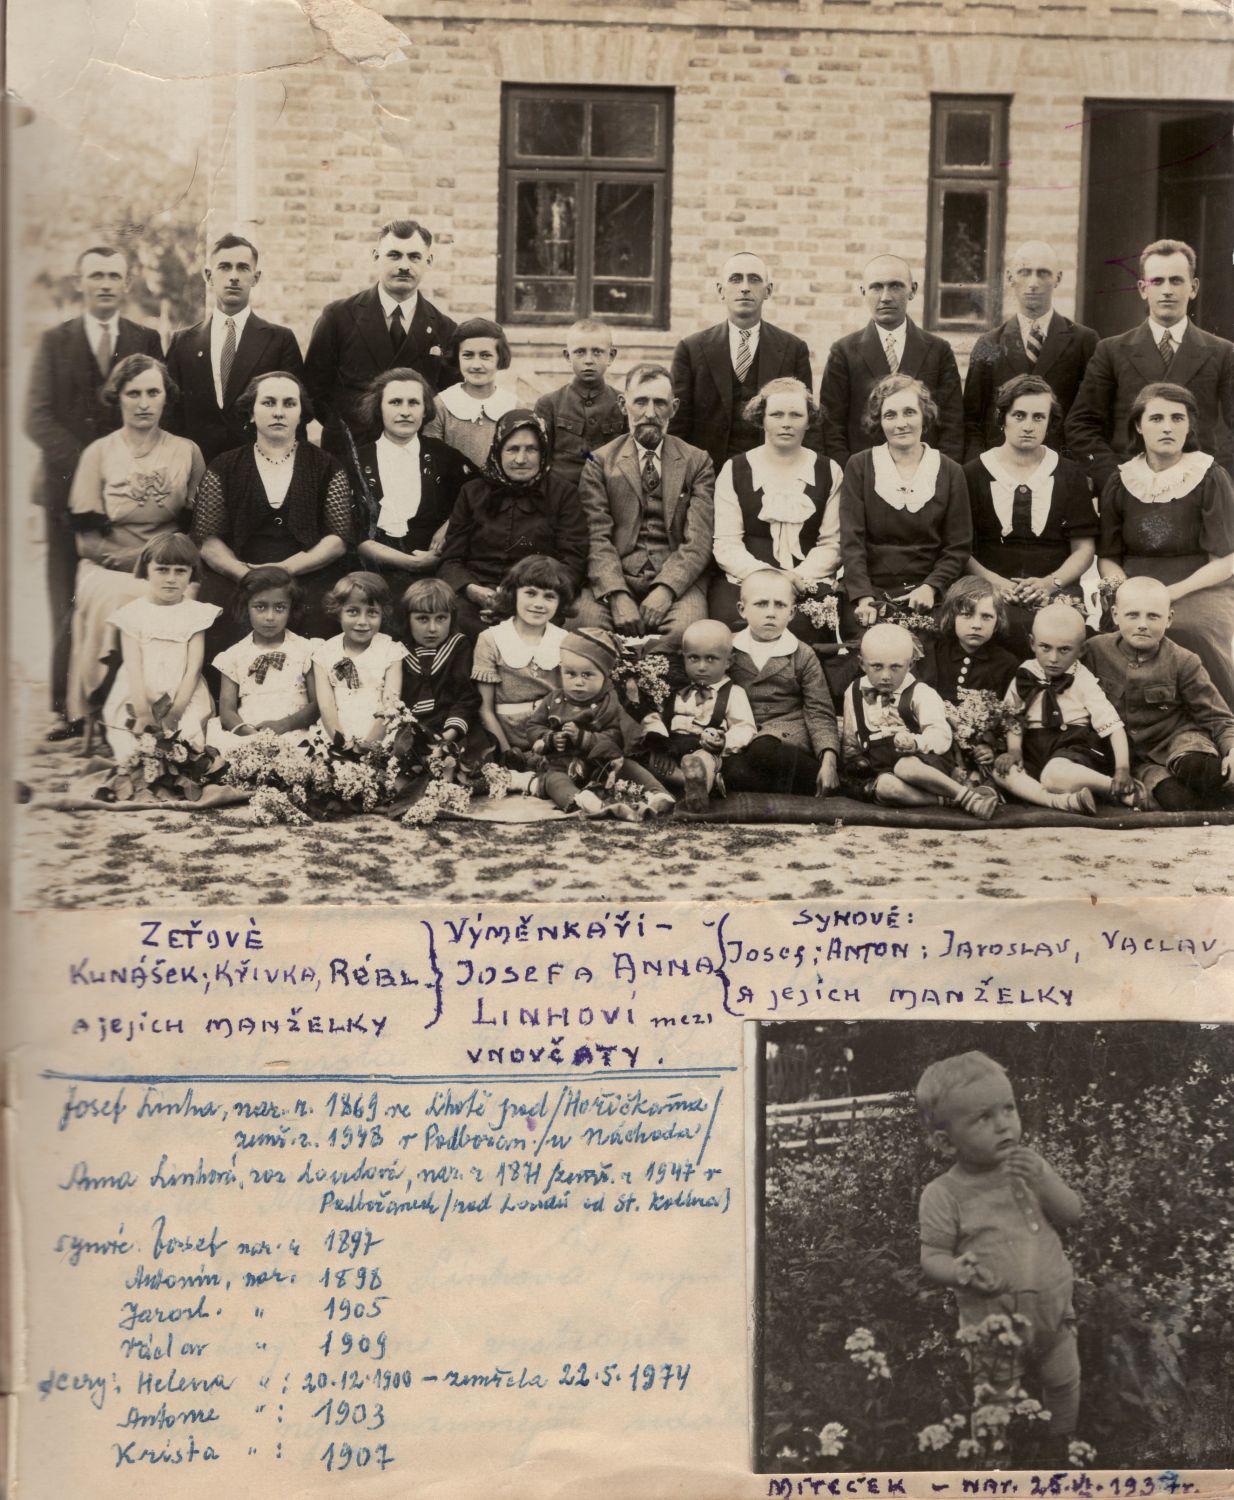 ZEŤOVÉ
KUNÁŠEK; KŘIVKA, RÉBL.
A JEJICH MANŽELKY
VÝMĚNKÁŘI –
JOSEF A ANNA
LINHOVÍ mezi
VNOUČATY.
SYNOVÉ:
JOSEF; ANTON; JAROSLAV, VACLAV
A JEJICH MANŽELKY
Josef Linha, nar. r. 1869 ve Lhotě pod /Hořičkama/
zemř. r. 1948 v Podbořan. /u Náchoda/
Anna Linhová, roz Loudová, nar. r 1871 /zemř. r 1947 v
Podbořanech /rod Loudů od St. Kolína)
synové: Josef nar. r 1897
Antonín, nar. 1898
Jarosl. " 1905
Václav " 1909
dcery: Helena " : 20.12.1900 – zemřela 22.5.1974
Antonie " : 1903
Krista " : 1907
MÍTEČEK – NAR. 25.VI.1937r.